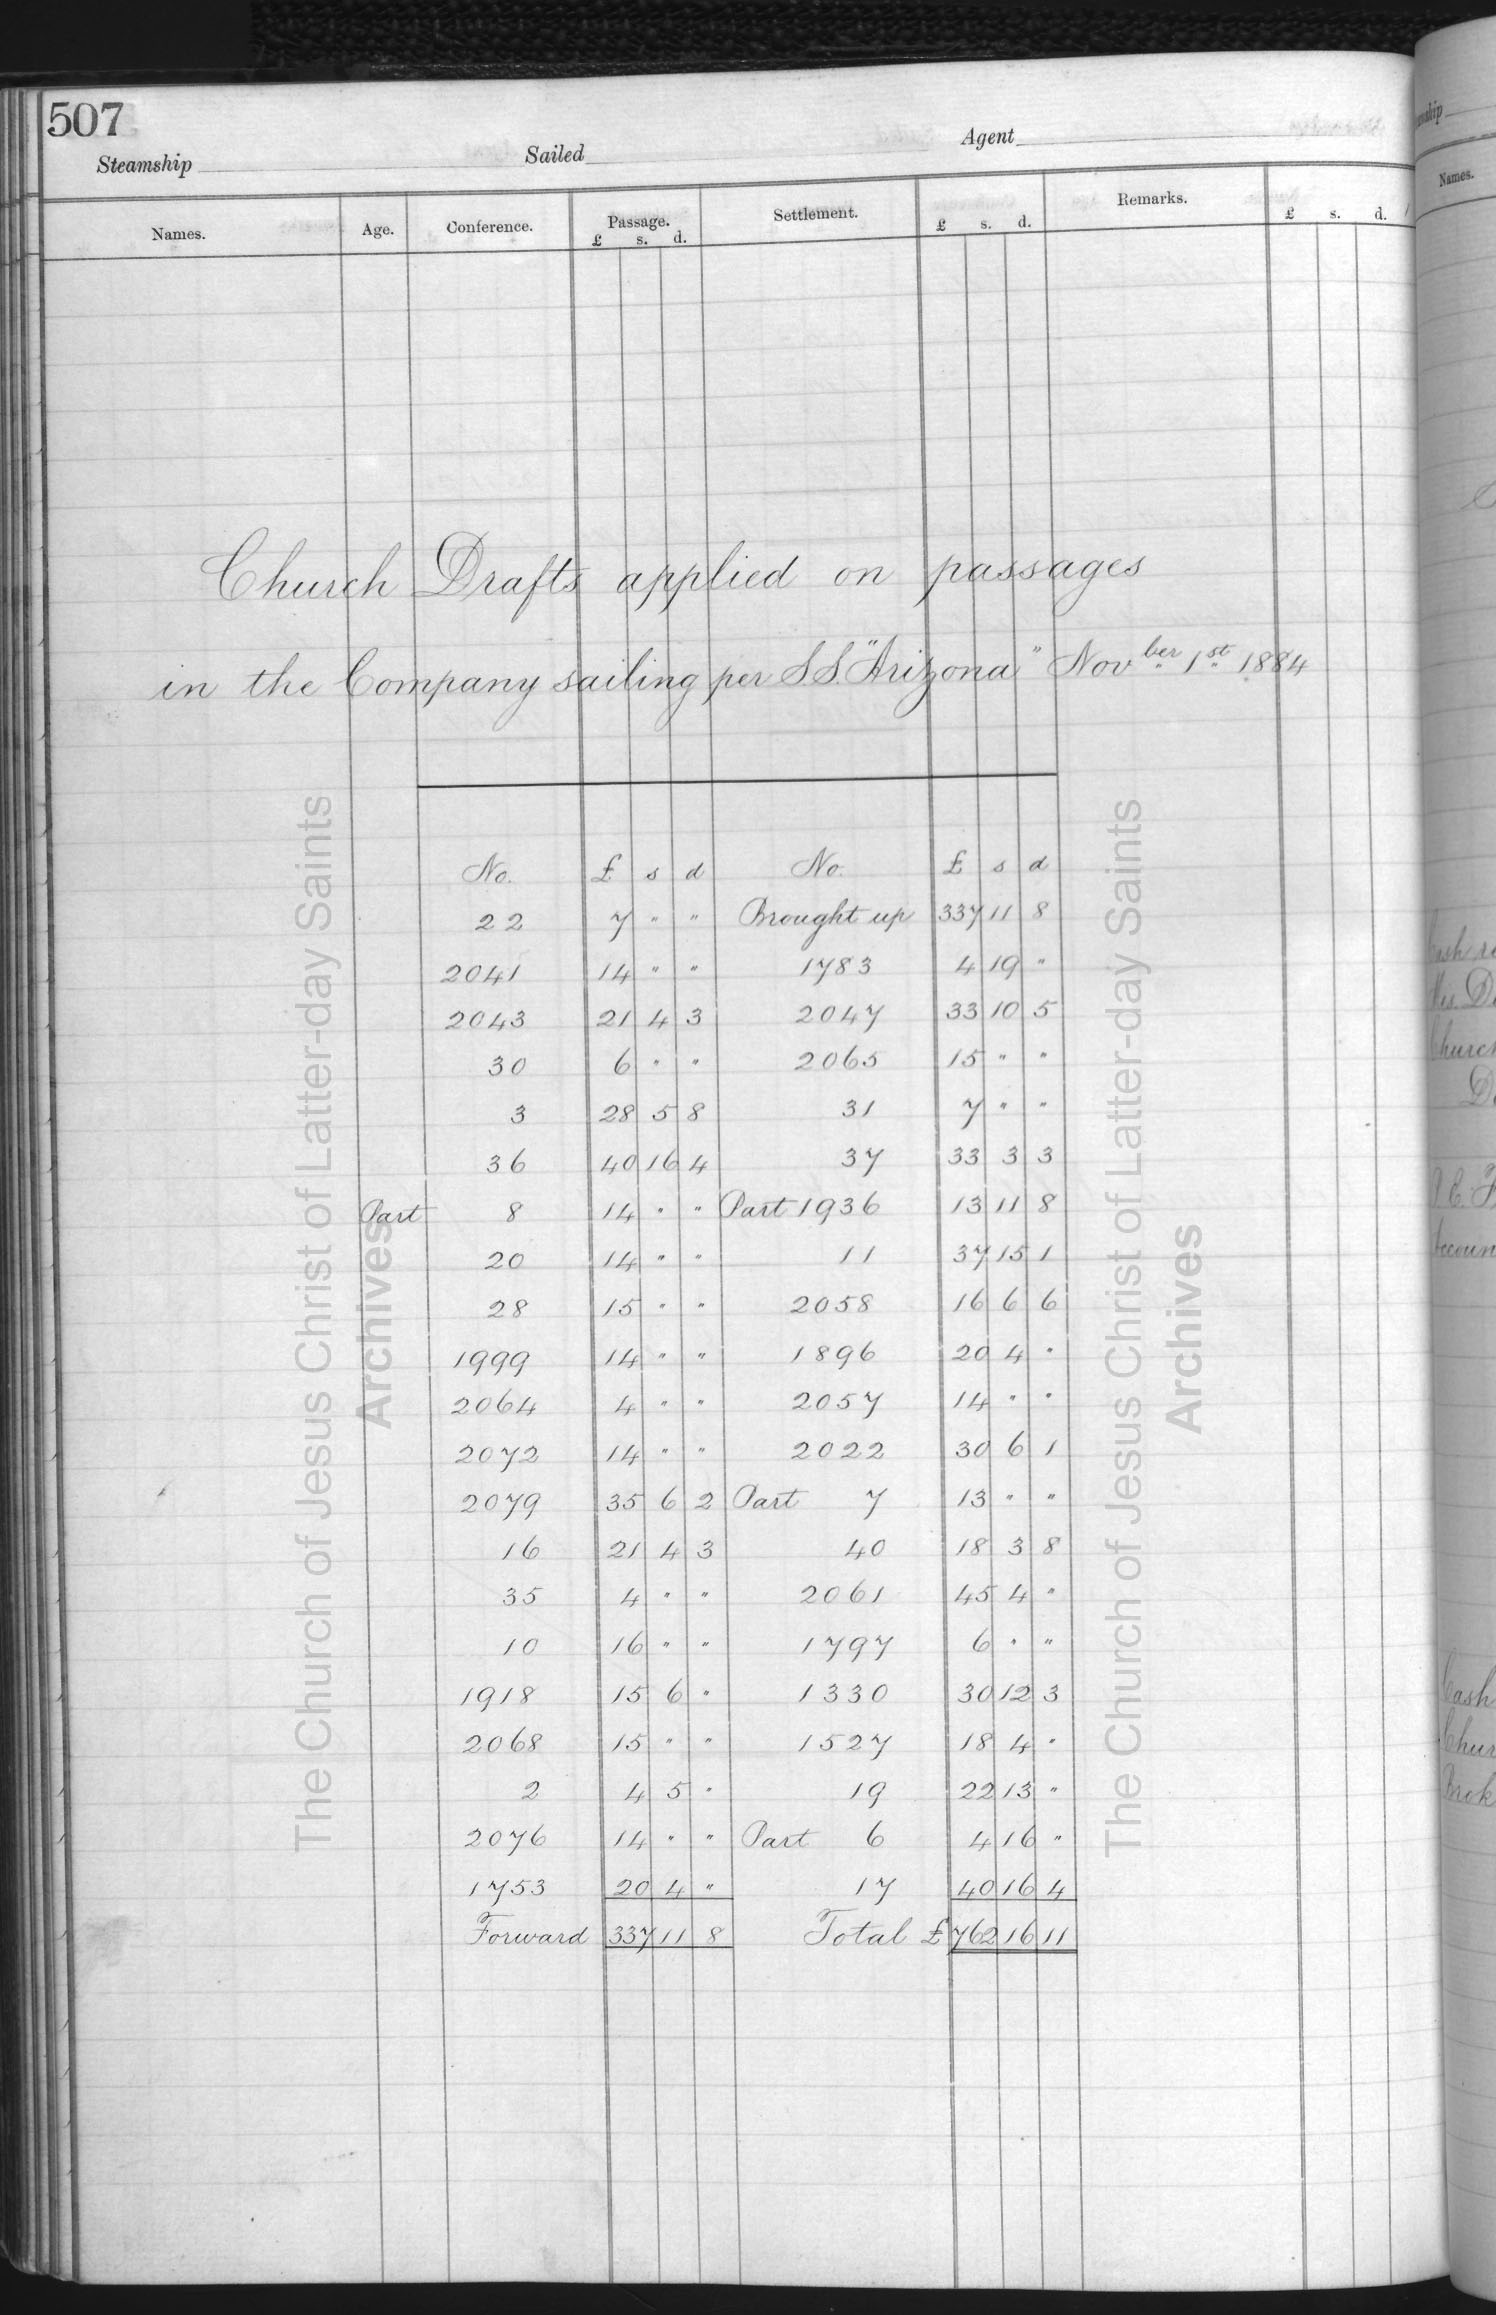 507
Steamship Sailed Agent
Names. Age. Conference. Passage. Settlement. Remarks.
£ s. d. £ s. d. £ s. d.
Church Drafts applied on passages
in the Company sailing per S.S. "Arizona" Novber 1st 1884
No. £ s d No. £ s d
22 7 " " Brought up 337 11 8
2041 14 " " 1783 4 19 "
2043 21 4 3 2047 33 10 5
30 6 " " 2065 15 " "
3 28 5 8 31 7 " "
36 40 16 4 37 33 3 3
Part 8 14 " " Part 1936 13 11 8
20 14 " " 11 37 15 1
28 15 " " 2058 16 6 6
1999 14 " " 1896 20 4 "
2064 4 " " 2057 14 " "
2072 14 " " 2022 30 6 1
2079 35 6 2 Part 7 13 " "
16 21 4 3 40 18 3 8
35 4 " " 2061 45 4 "
10 16 " " 1797 6 " "
1918 15 6 " 1330 30 12 3
2068 15 " " 1527 18 4 "
2 4 5 " 19 22 13 "
2076 14 " " Part 6 4 16 "
1753 20 4 " 17 40 16 4
Forward 337 11 8 Total £ 762 16 11
The Church of Jesus Christ of Latter-day Saints
Archives
The Church of Jesus Christ of Latter-day Saints
Archives
Names.
Cash